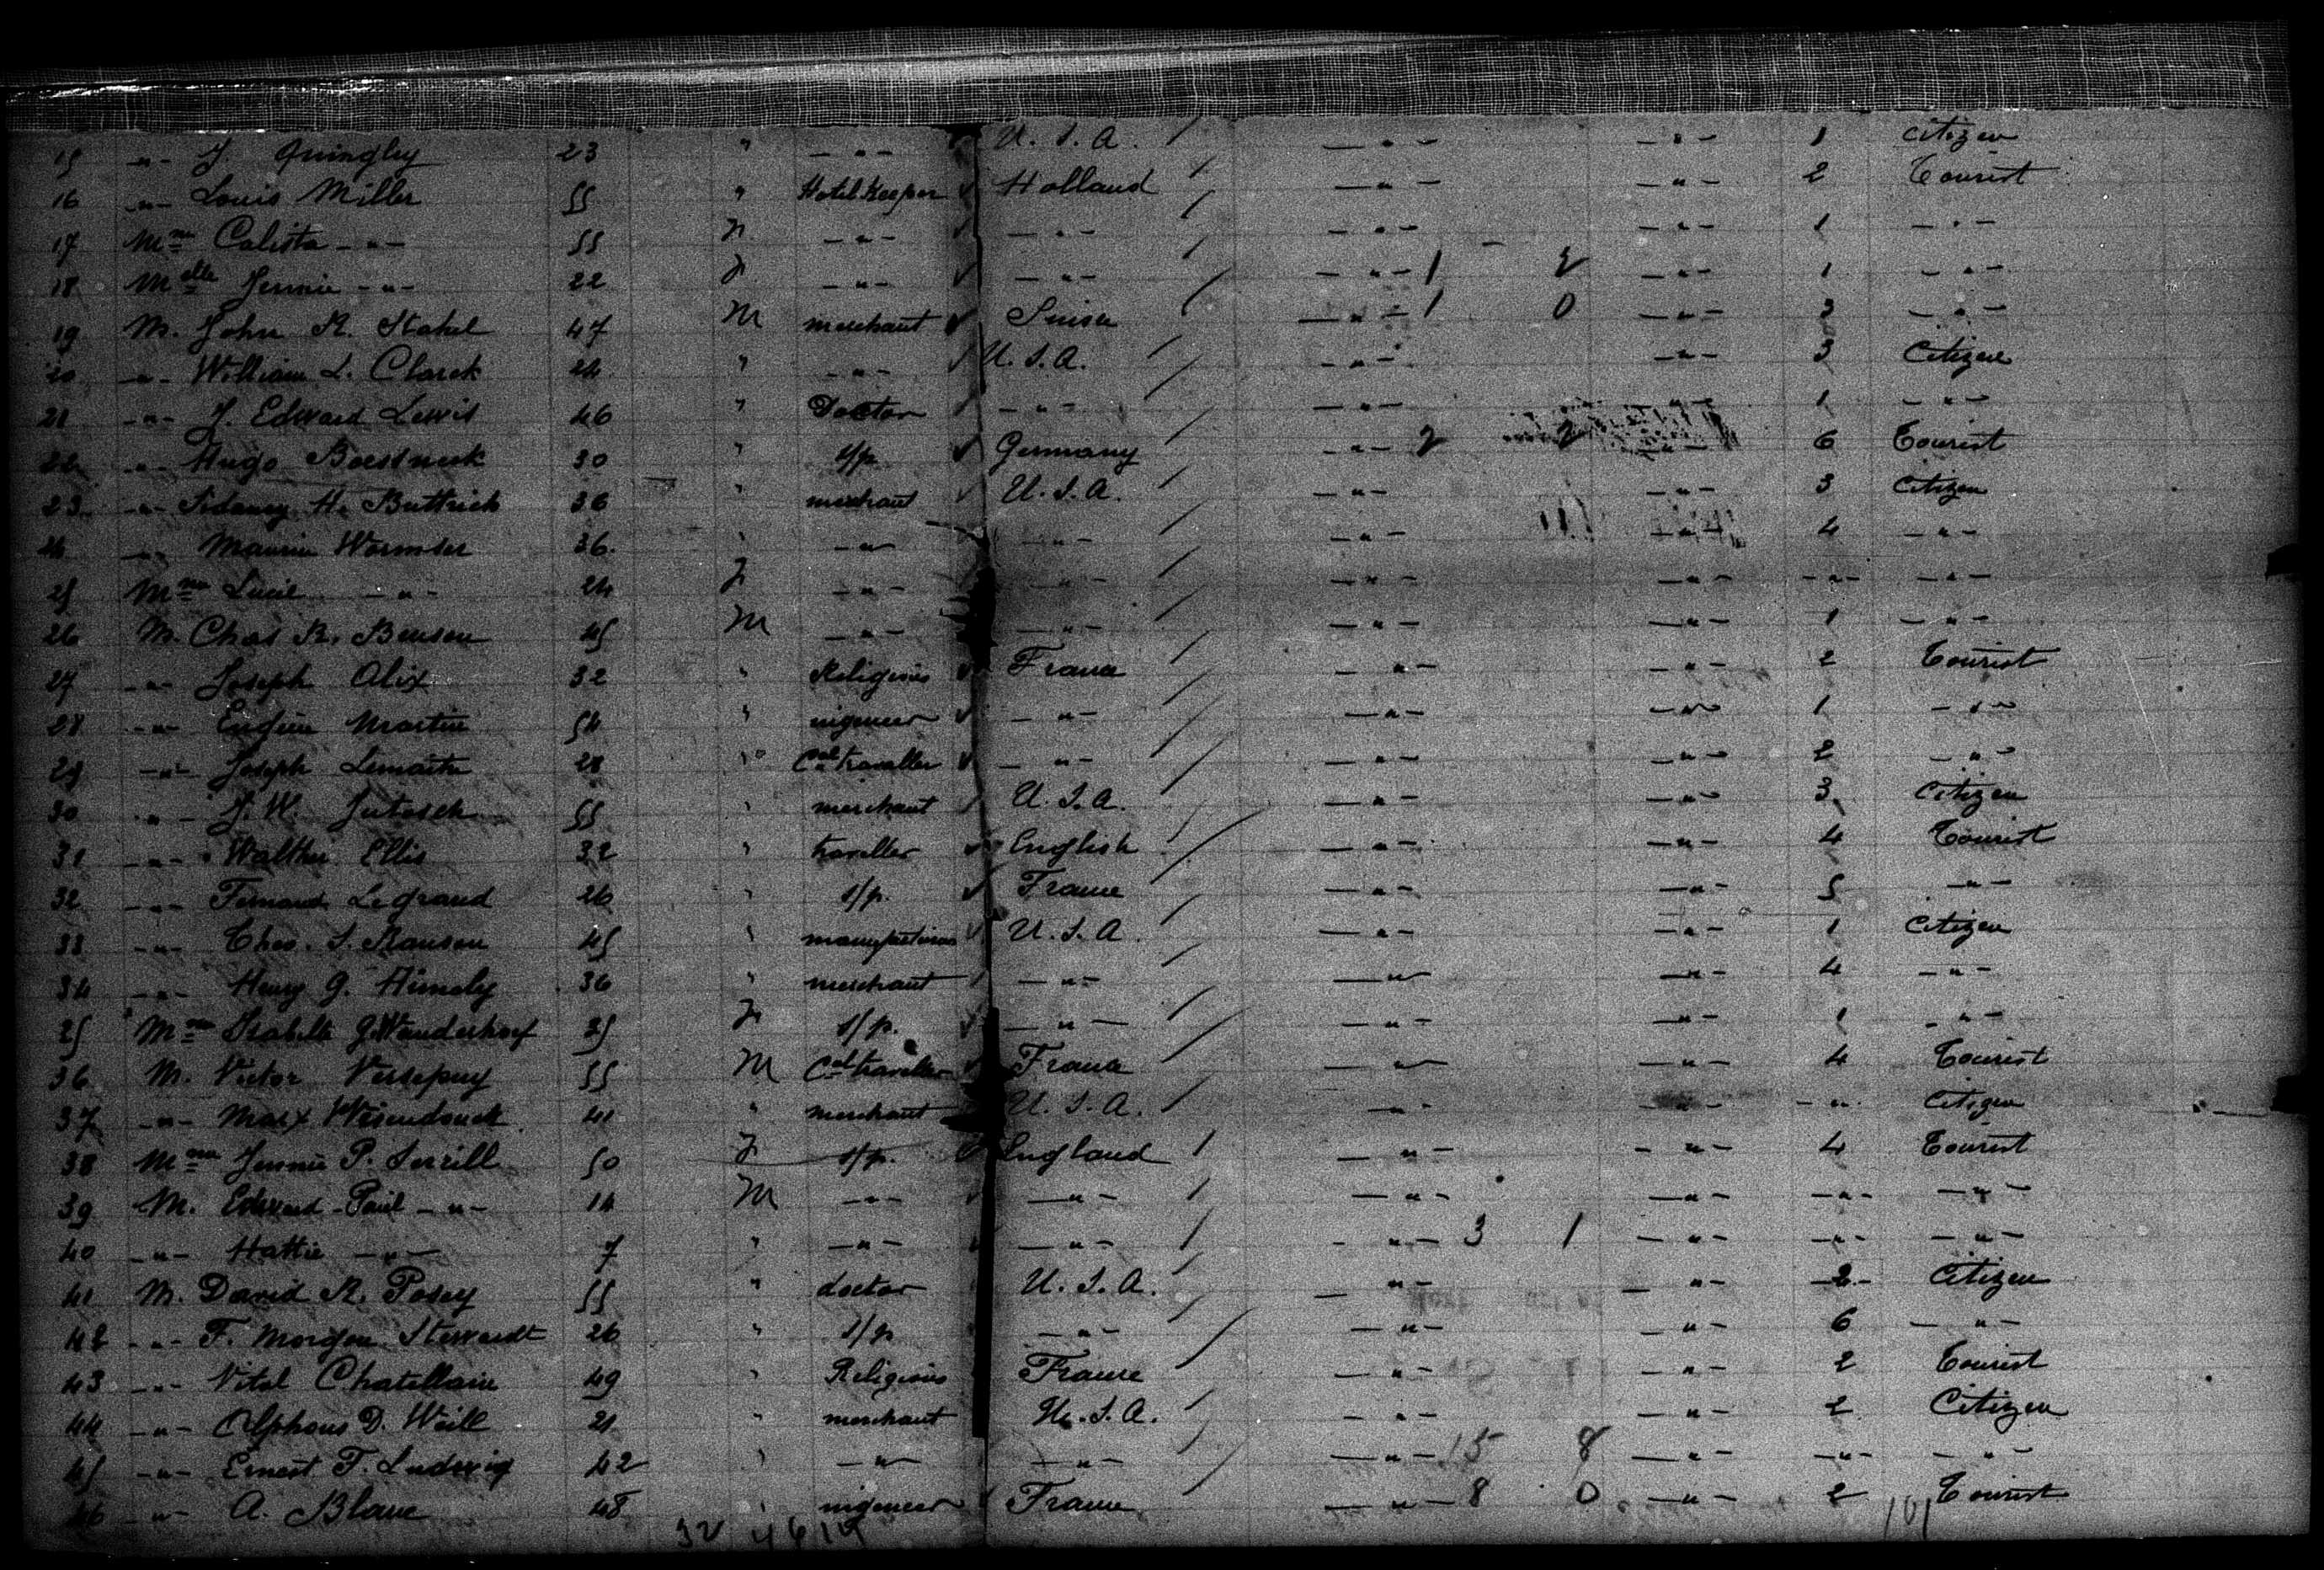 15 -"- J. Quingley 23 " -"- U.S.A. / -"- -"- 1 Citizen
16 -"- Louis Miller 55 " Hotel Keeper Holland / -"- -"- 2 Tourist
17 Mme Calista -"- 55 F -"- -"- / -"- -"- 1 -"-
18 Melle Jennie -"- 22 F -"- -"- / -"- 1 2 -"- 1 -"-
19 M. John R. Stahel 47 M merchant Suisse / -"- 1 0 -"- 3 -"-
20 -"- William L. Clarck 24 " -"- U.S.A. / -"- -"- 3 Citizen
21 -"- J. Edward Lewis 46 " Doctor -"- / -"- -"- 1 -"-
22 -"- Hugo 30 " s/p. Germany / -"- 2 2 -"- 6 Tourist
23 -"- Sidaney H. Buttrick 36 " merchant U.S.A. / -"- -"- 3 Citizen
24 -"- Maurice Wormser 36 " -"- -"- / -"- -"- 4 -"-
25 Mme Lucie -"- 24 F -"- -"- / -"- -"- -"- -"-
26 M. Chas R. Benson 45 M -"- -"- / -"- -"- 1 -"-
27 -"- Joseph Alix 32 " Religious France / -"- -"- 2 Tourist
28 -"- Eugène Martin 54 " nigeneer -"- / -"- -"- 1 -"-
29 -"- Joseph Lemaitre 28 " Cal traveller -"- / -"- -"- 2 -"-
30 -"- J.W. 55 " merchant U.S.A. / -"- -"- 3 Citizen
31 -"- Walther Ellis 32 " traveller English / -"- -"- 4 Tourist
32 -"- Fernand Legrand 26 " s/p. France / -"- -"- 5 -"-
33 -"- Theo. S. Ranson 45 " U.S.A. / -"- -"- 1 Citizen
34 -"- Henry G. 36 " merchant -"- / -"- -"- 4 -"-
35 Mme Isabelle G. Wanderhoef 35 F s/p. -"- / -"- -"- 1 -"-
36 M. Victor Vissepuy 55 M Cal traveller France / -"- -"- 4 Tourist
37 -"- Max Wesendonck 41 " merchant U.S.A. / -"- -"- -"- Citizen
38 Mme Jennie P. Serrill 50 F s/p. England / -"- -"- 4 Tourist
39 M. Edward-Paul -"- 14 M -"- -"- / -"- -"- -"- -"-
40 -"- Hattie -"- 7 " -"- -"- / -"- 3 1 -"- -"- -"-
41 M. David R. Posey 55 " doctor U.S.A. / -"- -"- 2 Citizen
42 -"- F. Morgan Stewardt 26 " s/p. -"- / -"- -"- 6 -"-
43 -"- Vital Chatellain 49 " Religious France / -"- -"- 2 Tourist
44 -"- Alphons D. Weill 21 " merchant U.S.A. / -"- -"- 2 Citizen
45 -"- Ernest F. Ludewig 42 " -"- -"- / -"- 15 8 -"- -"- -"-
46 -"- A. Blanc 48 " nigeneer France -"- 8 0 -"- 2 Tourist
32 101